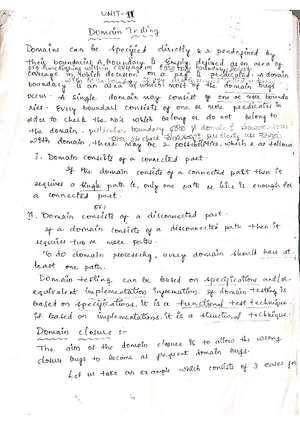 UNIT-II
Domain Testing
Domains can be specified directly & predefined by
their boundaries. A boundary is simply defined as an area of
coverage in which decision on a is predicated. A domain
boundary is an area in which most of the domain bugs
occur. A single domain may consist of one or more bounda
ries. Every boundary consists of one or more predicates in
order to check the no's which belong or do not belong to
the domain.
with domain, there may be 2 possibilities, which is as follows
i. Domain consists of a connected part.
If the domain consists of a connected part then it
requires a single path i.e, only one path or line is enough for
a connected part.
or,
ii. Domain consists of a disconnected part.
If a domain consists of a disconnected path then it
requires two or more paths.
To do domain processing, every domain should have at-
least one path.
Domain testing can be based on specifications and/or
equivalent implementation information. If domain testing is
based on specifications, it is a functional test technique
if based on implementations, it is a structural technique.
Domain closure :-
The aim of the domain closure is to allow the wrong
closure bugs to become as frequent domain bugs.
Let us take an example which consists of 3 cases for